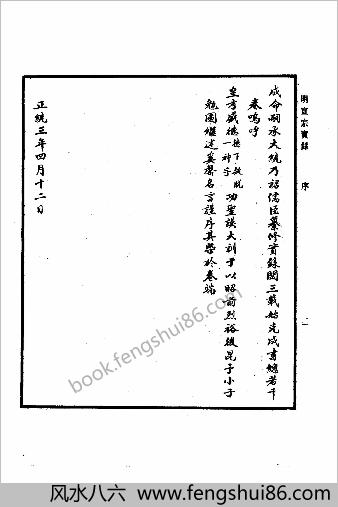 明宣宗實錄 序 二
成命嗣承大統乃詔儒臣纂修實錄閱三載始克成書總若干
卷嗚呼
皇考盛德
功聖謨大訓于以昭前烈裕後昆予小子
勉圖繼述莫罄名言謹序其槩於卷端
正統三年四月十二日
book.fengshui86.com
风水八六 www.fengshui86.com